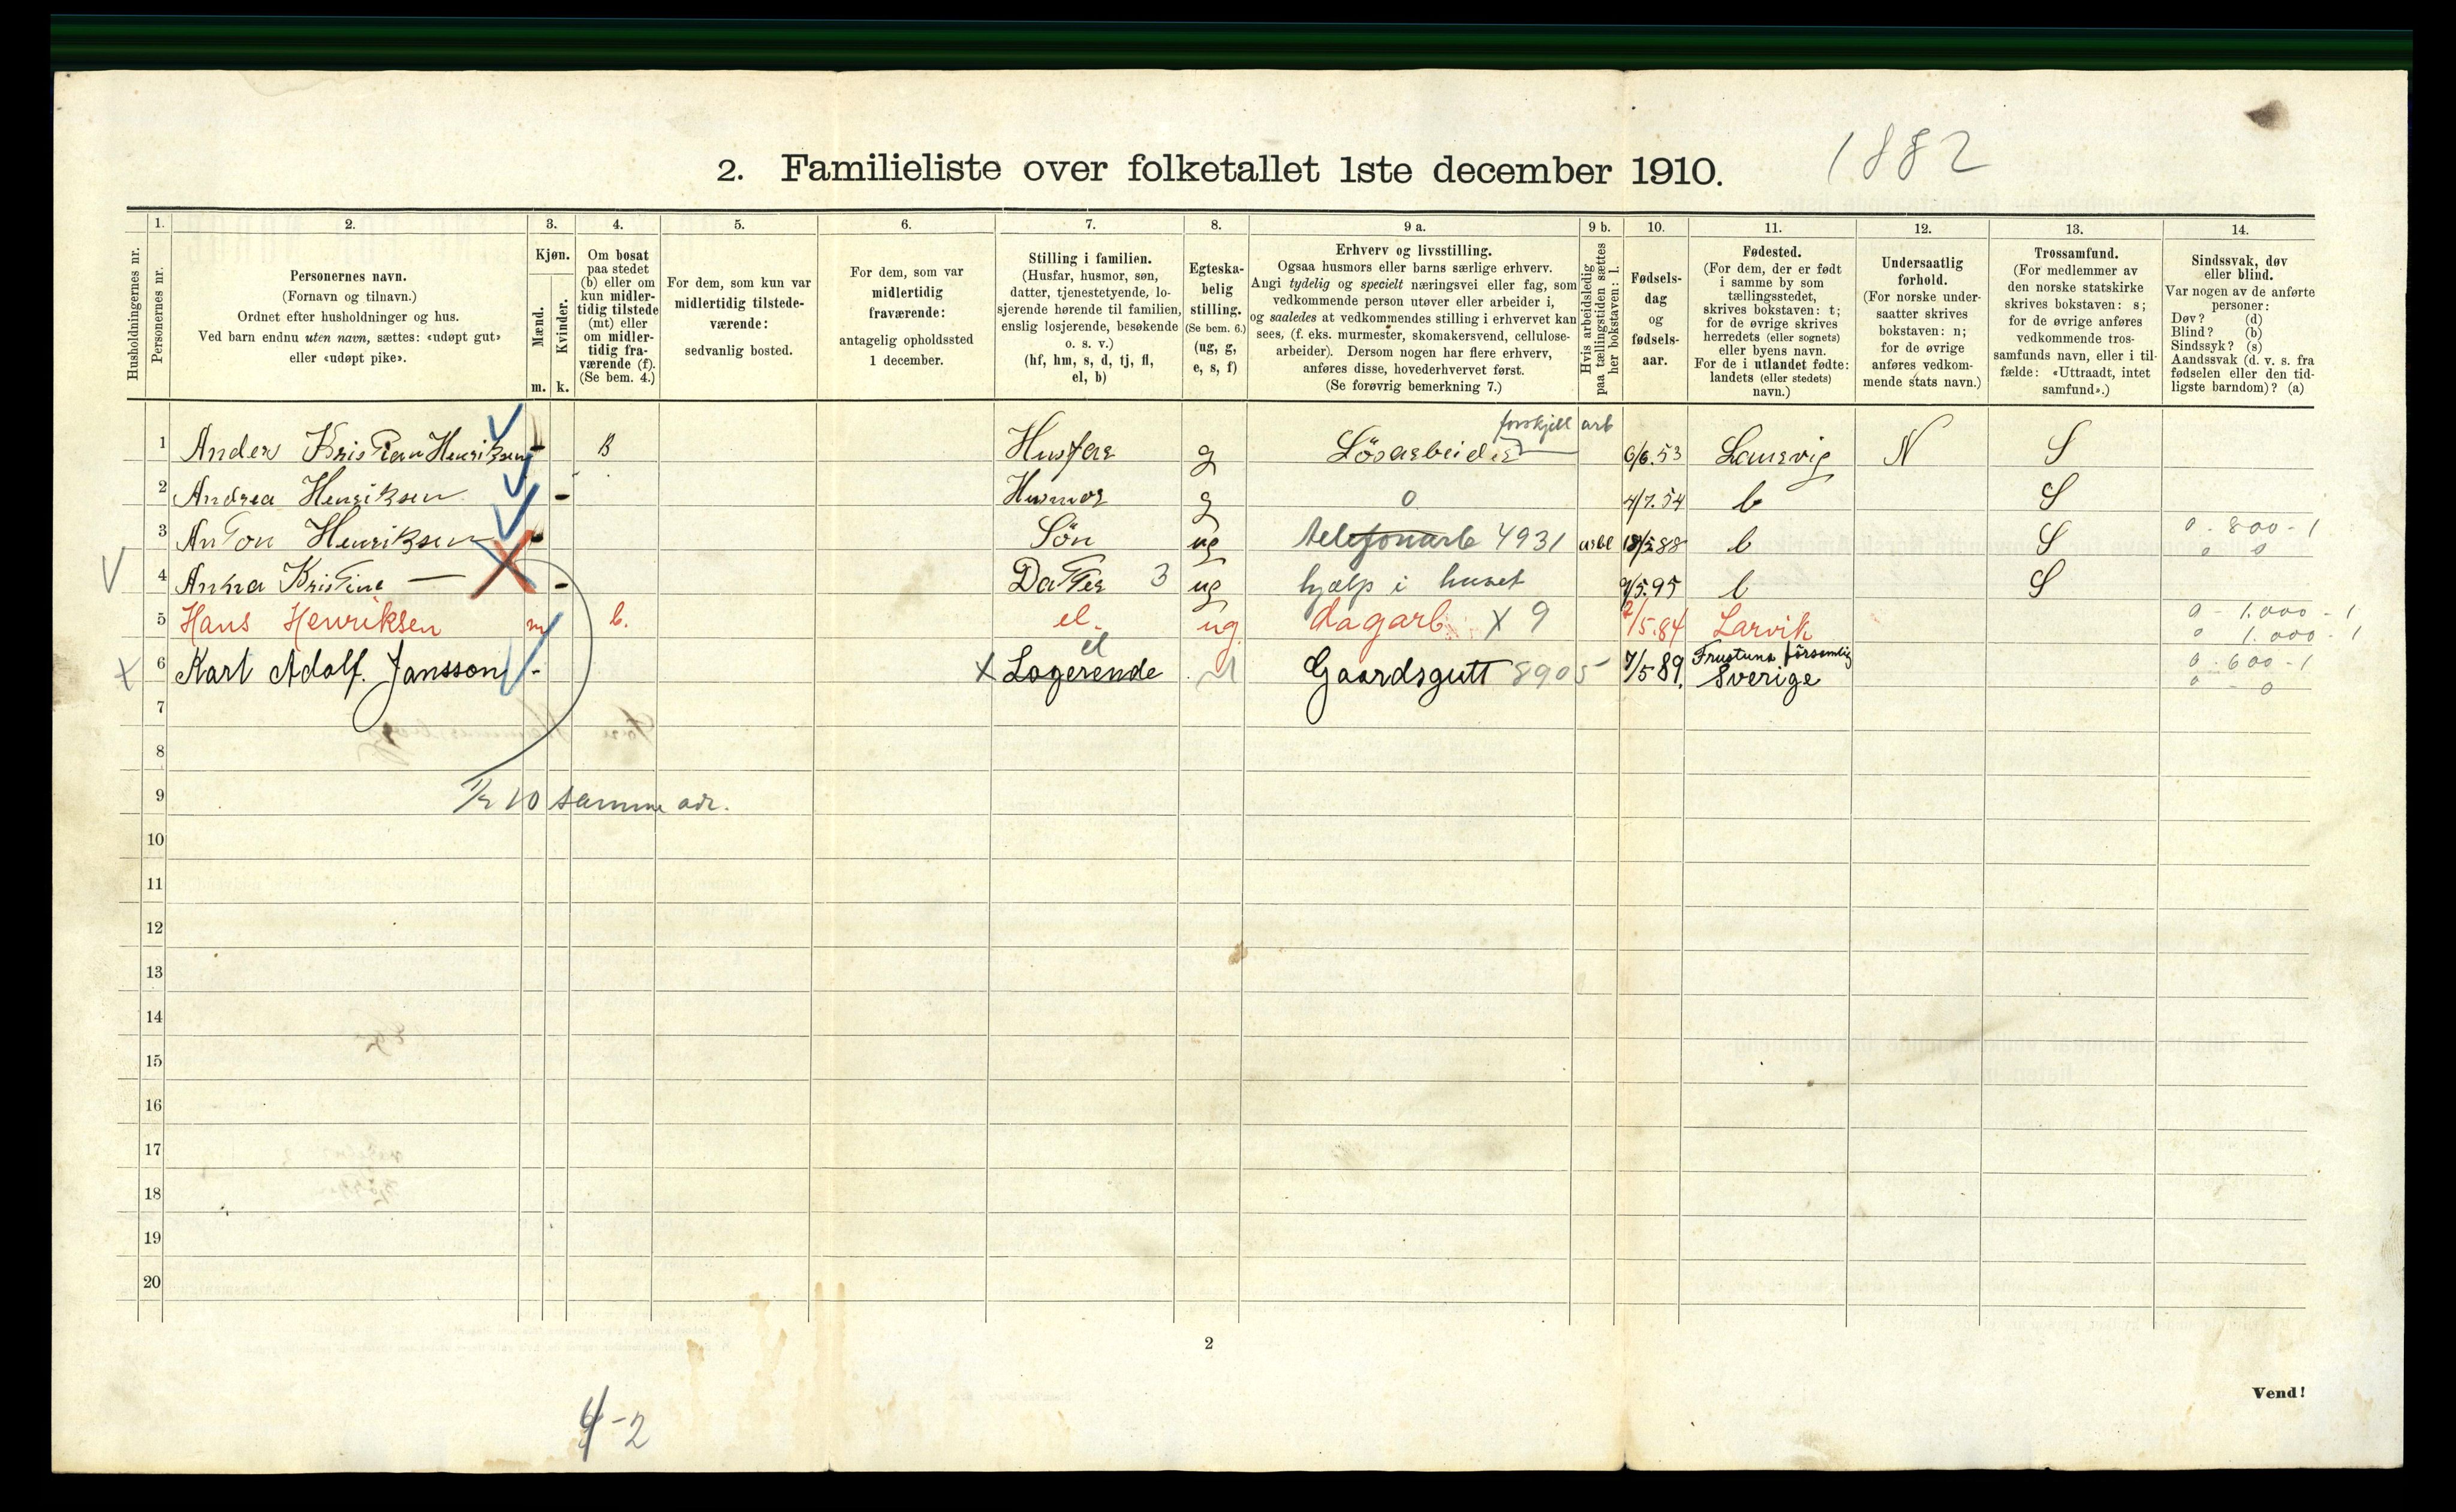 1882
2. Familieliste over folketallet 1ste december 1910.
Husholdningernes nr.
1.
Personernes nr.
2.
Personernes navn.
(Fornavn og tilnavn.)
Ordnet efter husholdninger og hus.
Ved barn endnu uten navn, sættes: «udøpt gut»
eller «udøpt pike».
3.
Kjøn.
Mænd.
Kvinder.
m. k.
4.
Om bosat
paa stedet
(b) eller om
kun midler-
tidig tilstede
(mt) eller
om midler-
tidig fra-
værende (f).
(Se bem. 4.)
5.
For dem, som kun var
midlertidig tilstede-
værende:
sedvanlig bosted.
6.
For dem, som var
midlertidig
fraværende:
antagelig opholdssted
1 december.
7.
Stilling i familien.
(Husfar, husmor, søn,
datter, tjenestetyende, lo-
sjerende hørende til familien,
enslig losjerende, besøkende
o. s. v.)
(hf, hm, s, d, tj, fl,
el, b)
8.
Egteska-
belig
stilling.
(Se bem. 6.)
(ug, g,
e, s, f)
9 a.
Erhverv og livsstilling.
Ogsaa husmors eller barns særlige erhverv.
Angi tydelig og specielt næringsvei eller fag, som
vedkommende person utøver eller arbeider i,
og saaledes at vedkommendes stilling i erhvervet kan
sees, (f. eks. murmester, skomakersvend, cellulose-
arbeider). Dersom nogen har flere erhverv,
anføres disse, hovederhvervet først.
(Se forøvrig bemerkning 7.)
9 b.
Hvis arbeidsledig
paa tællingstiden sættes
her bokstaven: l.
10.
Fødsels-
dag
og
fødsels-
aar.
11.
Fødested.
(For dem, der er født
i samme by som
tællingsstedet,
skrives bokstaven: t;
for de øvrige skrives
herredets (eller sognets)
eller byens navn.
For de i utlandet fødte:
landets (eller stedets)
navn.)
12.
Undersaatlig
forhold.
(For norske under-
saatter skrives
bokstaven: n;
for de øvrige
anføres vedkom-
mende stats navn.)
13.
Trossamfund.
(For medlemmer av
den norske statskirke
skrives bokstaven: s;
for de øvrige anføres
vedkommende tros-
samfunds navn, eller i til-
fælde: «Uttraadt, intet
samfund».)
14.
Sindssvak, døv
eller blind.
Var nogen av de anførte
personer:
Døv? (d)
Blind? (b)
Sindssyk? (s)
Aandssvak (d. v. s. fra
fødselen eller den tid-
ligste barndom)? (a)
forskjell arb
1 Ander Kristian Henriksen - B Husfar g Lösarbeider 6/6.53 Laurvig N S
2 Andrea Henriksen - Husmor g 0 4/7.54 b S
3 Anton Henriksen - Søn ug telefonarb 4931 18/5.88 b S 0 - 800 - 1
0 0
4 Anna Kristine — - Datter 3 ug hjælp i huset 9/5.95 b S
5 Hans Henriksen m b. el. ug. dagarb. x 9 2/5.84 Larvik 0 - 1.000 - 1
0 1.000 - 1
el
6 Karl Adolf. Jansson - x Logerende Gaardsgutt 8905 7/5 89. Frustuna församlig Sverige 0 - 600 - 1
0 - 0
7
8
9 1/2 10 samme adr.
10
11
12
13
14
15
16
17
18
19
20
2
Vend!
-2